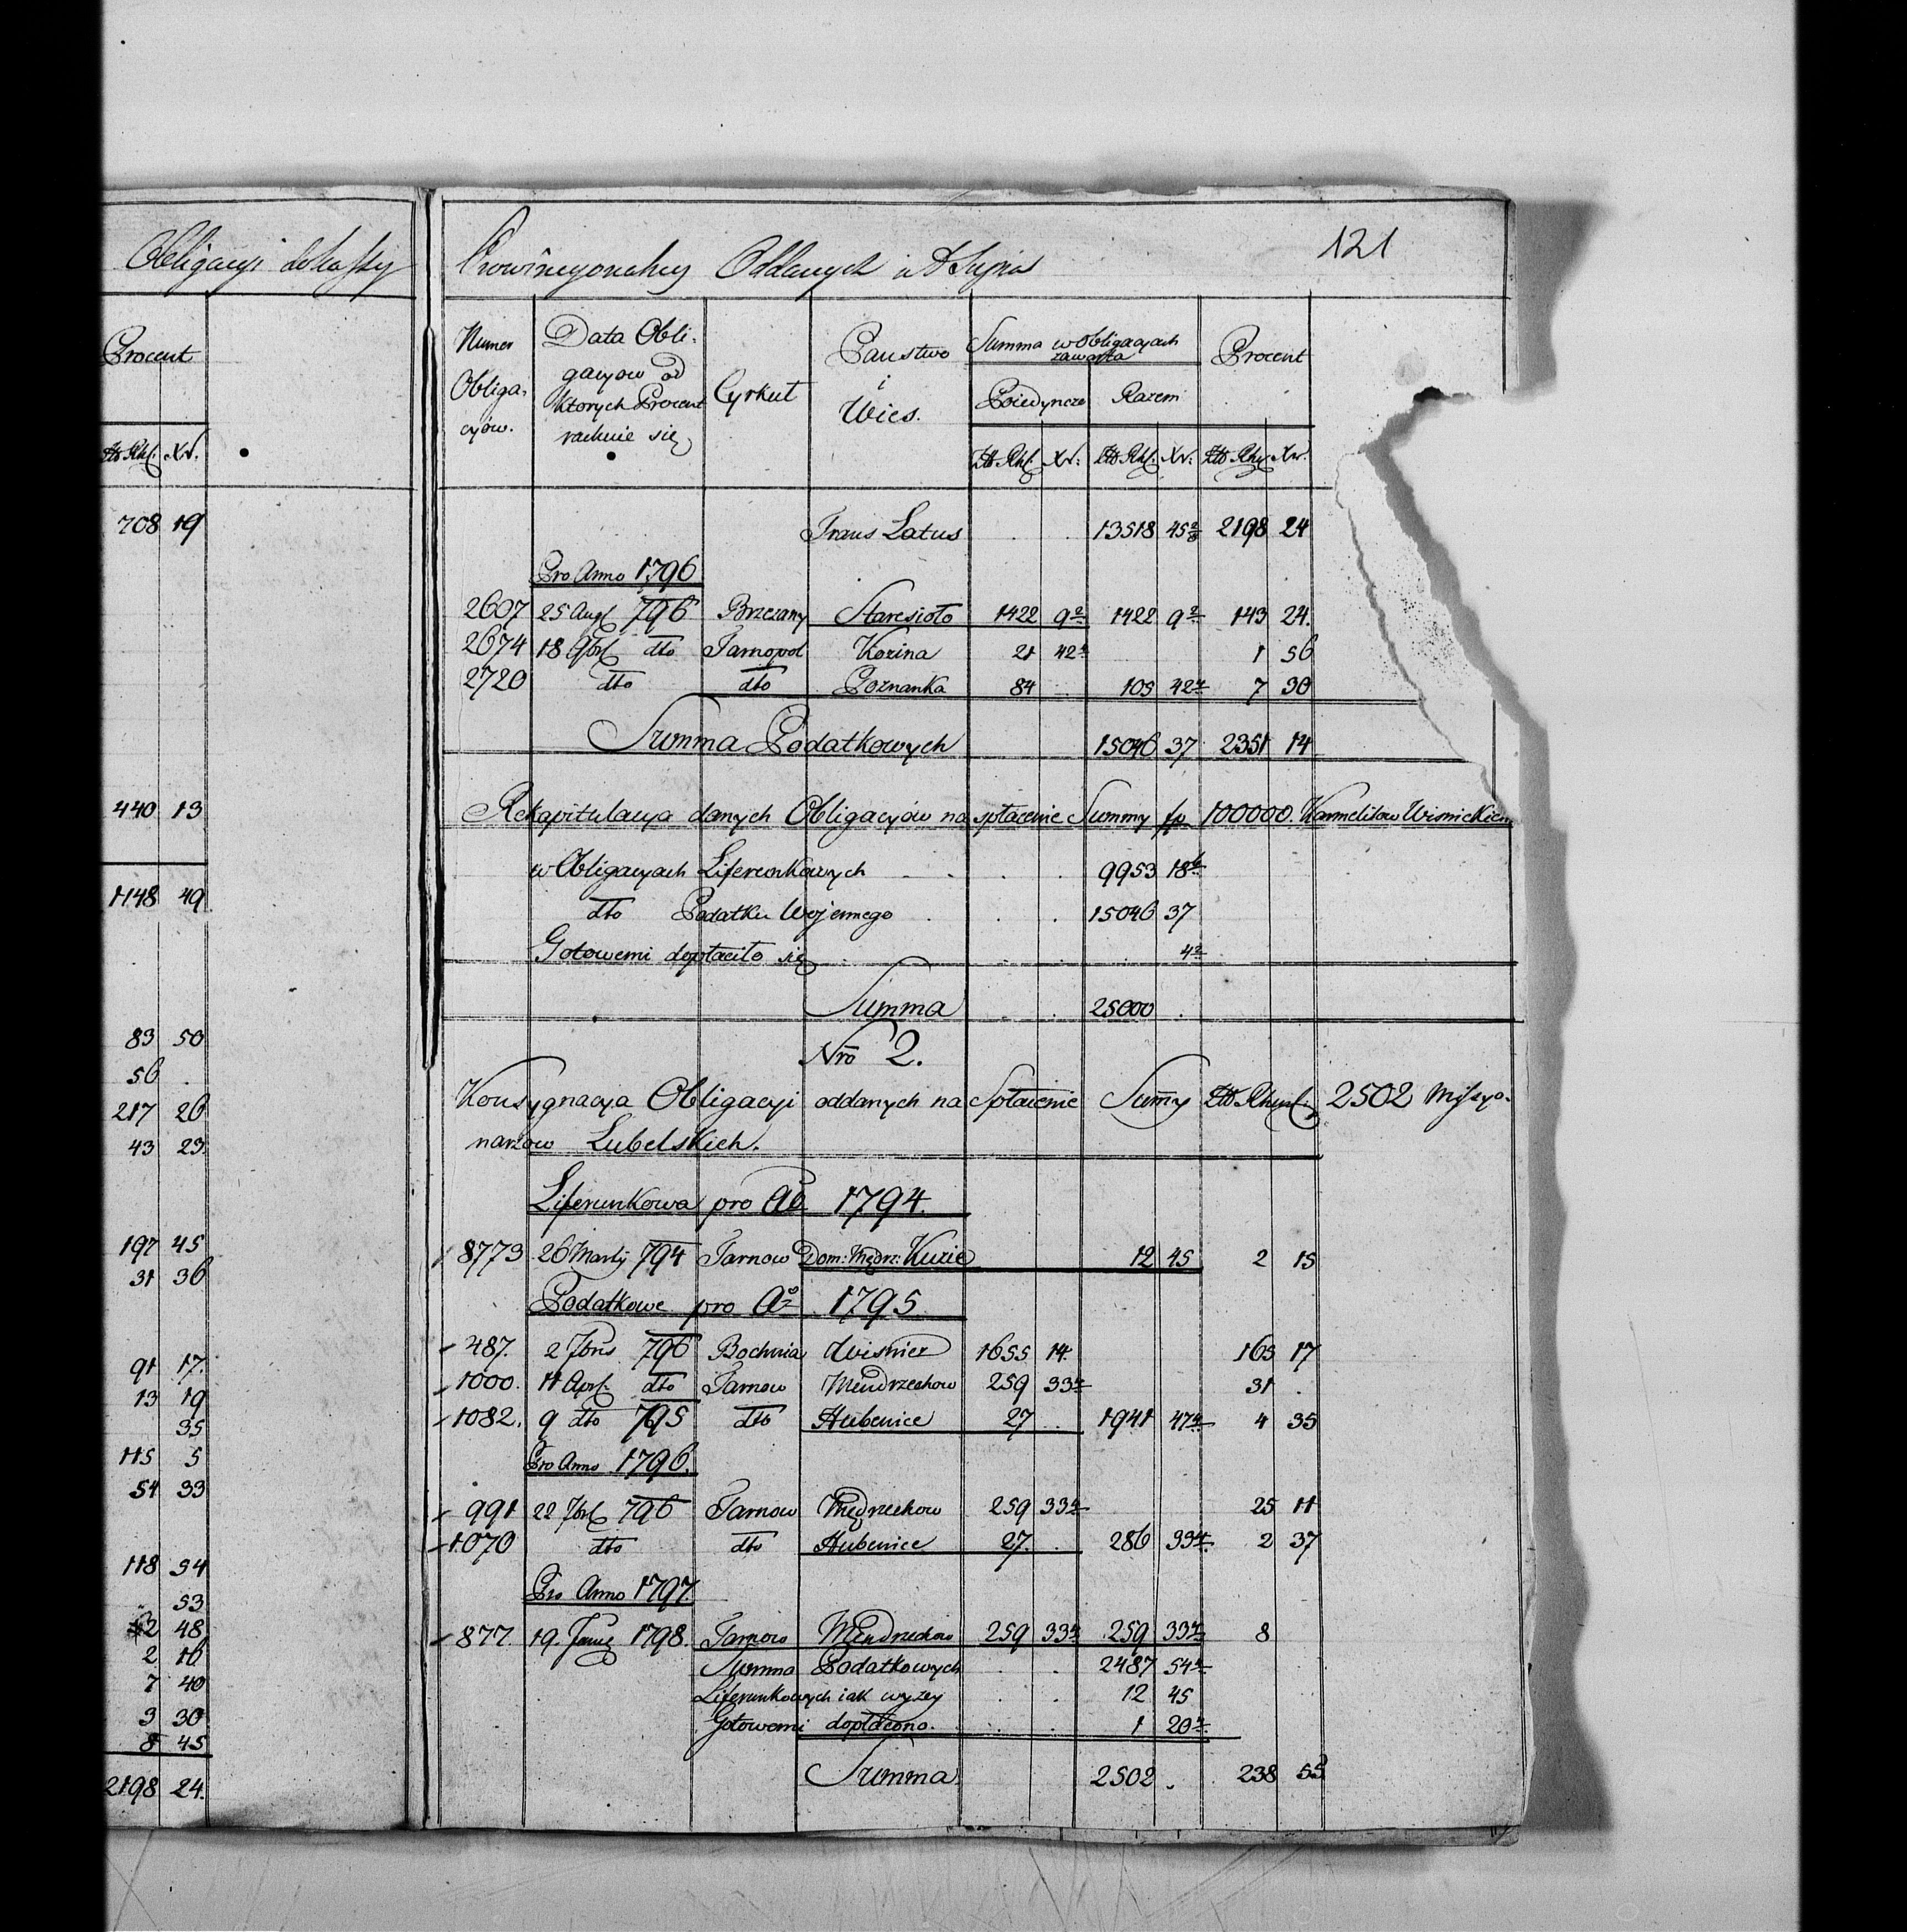 Obligacyi do Kassy
Procent
Xr.
708 19
440 13
1148 49
83 50
56 .
217 26
43 23.
197 45
31 36
91 17.
13 19
35
115 5
54 33
118 54
53
2 48
2 16
7 40
3 30
8 45
2198 24.
Prowincyonalney Oddanych
121
Numer Obliga- cyów.
Data Obli- gacyow od ktorych Procent rachuie się
Cyrkuł
Panstwo i Wies.
Summa w obligacyach zawarta
Poiedyncze Razem
Procent
Zło Rhl. Xr. Zło Rhl. Xr. Zło Rhl. Xr.
Trans Latus . . 13518 45 2/8 2198 24
Pro Anno 1796
2607 25 Augl 796 Brzezany Staresioło 1422 9 2 1422 9 2 143 24.
2674 18 dto Tarnopol Kozina 21 42 4 1 56
2720 dto dto Poznanka 84 . 105 42 4 7 30
Summa Podatkowych 15046 37 2351 14
Rekapitulacya danych Obligacyów na spłacenie Summy fp 100000. Karmelitow Wisnickich
w Obligacyach Liferunkowych . . . . 9953 18 6
dto Podatku Wojennego . . . 15046 37
Gotowemi dopłaciło się . . . . 4 2
Summa . . 25000 .
Nro 2.
Konsygnacya Obligacyi oddanych na Spłacenie Summy Zło Rhenl. 2502 Missyo-
narzow Lubelskich.
Liferunkowa pro Ao 1794.
8773 26 Martij 794 Tarnow Dom: Mędrz: Kuzie 12 45 2 15
Podatkowe pro Ao 1795
487. 2 7bris 796 Bochnia Wisnicz 1655 14. 165 17
1000. 11 Aprl. dto Tarnow Mendrzechow 259 33 4 31 .
1082. 9 dto 795 dto Hubenice 27 . 1941 47 4 4 35
Pro Anno 1796.
991 22 7brl 796 Tarnow Mędrzechow 259 33 4 25 11
1070 dto dto Hubenice 27. . 286 33 4 2 37
Pro Anno 1797.
877. 19. Janu 1798. Tarnow Mendrzechow 259 33 4 259 33 4 8
Summa Podatkowych . . 2487 54 4
Liferunkowych iak wyzey . . 12 45
Gotowemi dopłacono. . . 1 20 4
Summa 2502 . 238 55